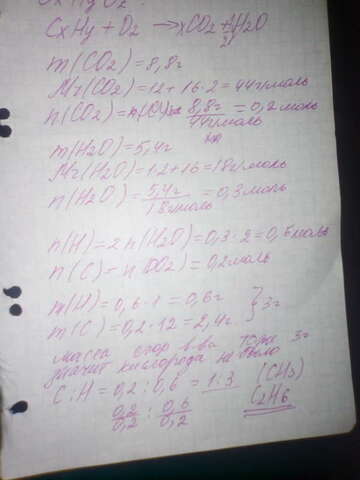 CxHy + O2 → xCO2 + y/2 H2O
m(CO2) = 8,8г
Mr(CO2) = 12 + 16·2 = 44г/моль
n(CO2) = n(C) = 8,8г/44г/моль = 0,2 моль
m(H2O) = 5,4г
Mr(H2O) = 1·2 + 16 = 18г/моль
n(H2O) = 5,4г/18г/моль = 0,3 моль
n(H) = 2 n(H2O) = 0,3 · 2 = 0,6 моль
n(C) = n(CO2) = 0,2 моль
m(H) = 0,6 · 1 = 0,6г } 3г
m(C) = 0,2 · 12 = 2,4г
масса сгор в-ва тоже 3г
значит кислорода не было
C : H = 0,2 : 0,6 = 1:3 (CH3)
0,2/0,2 : 0,6/0,2 C2H6